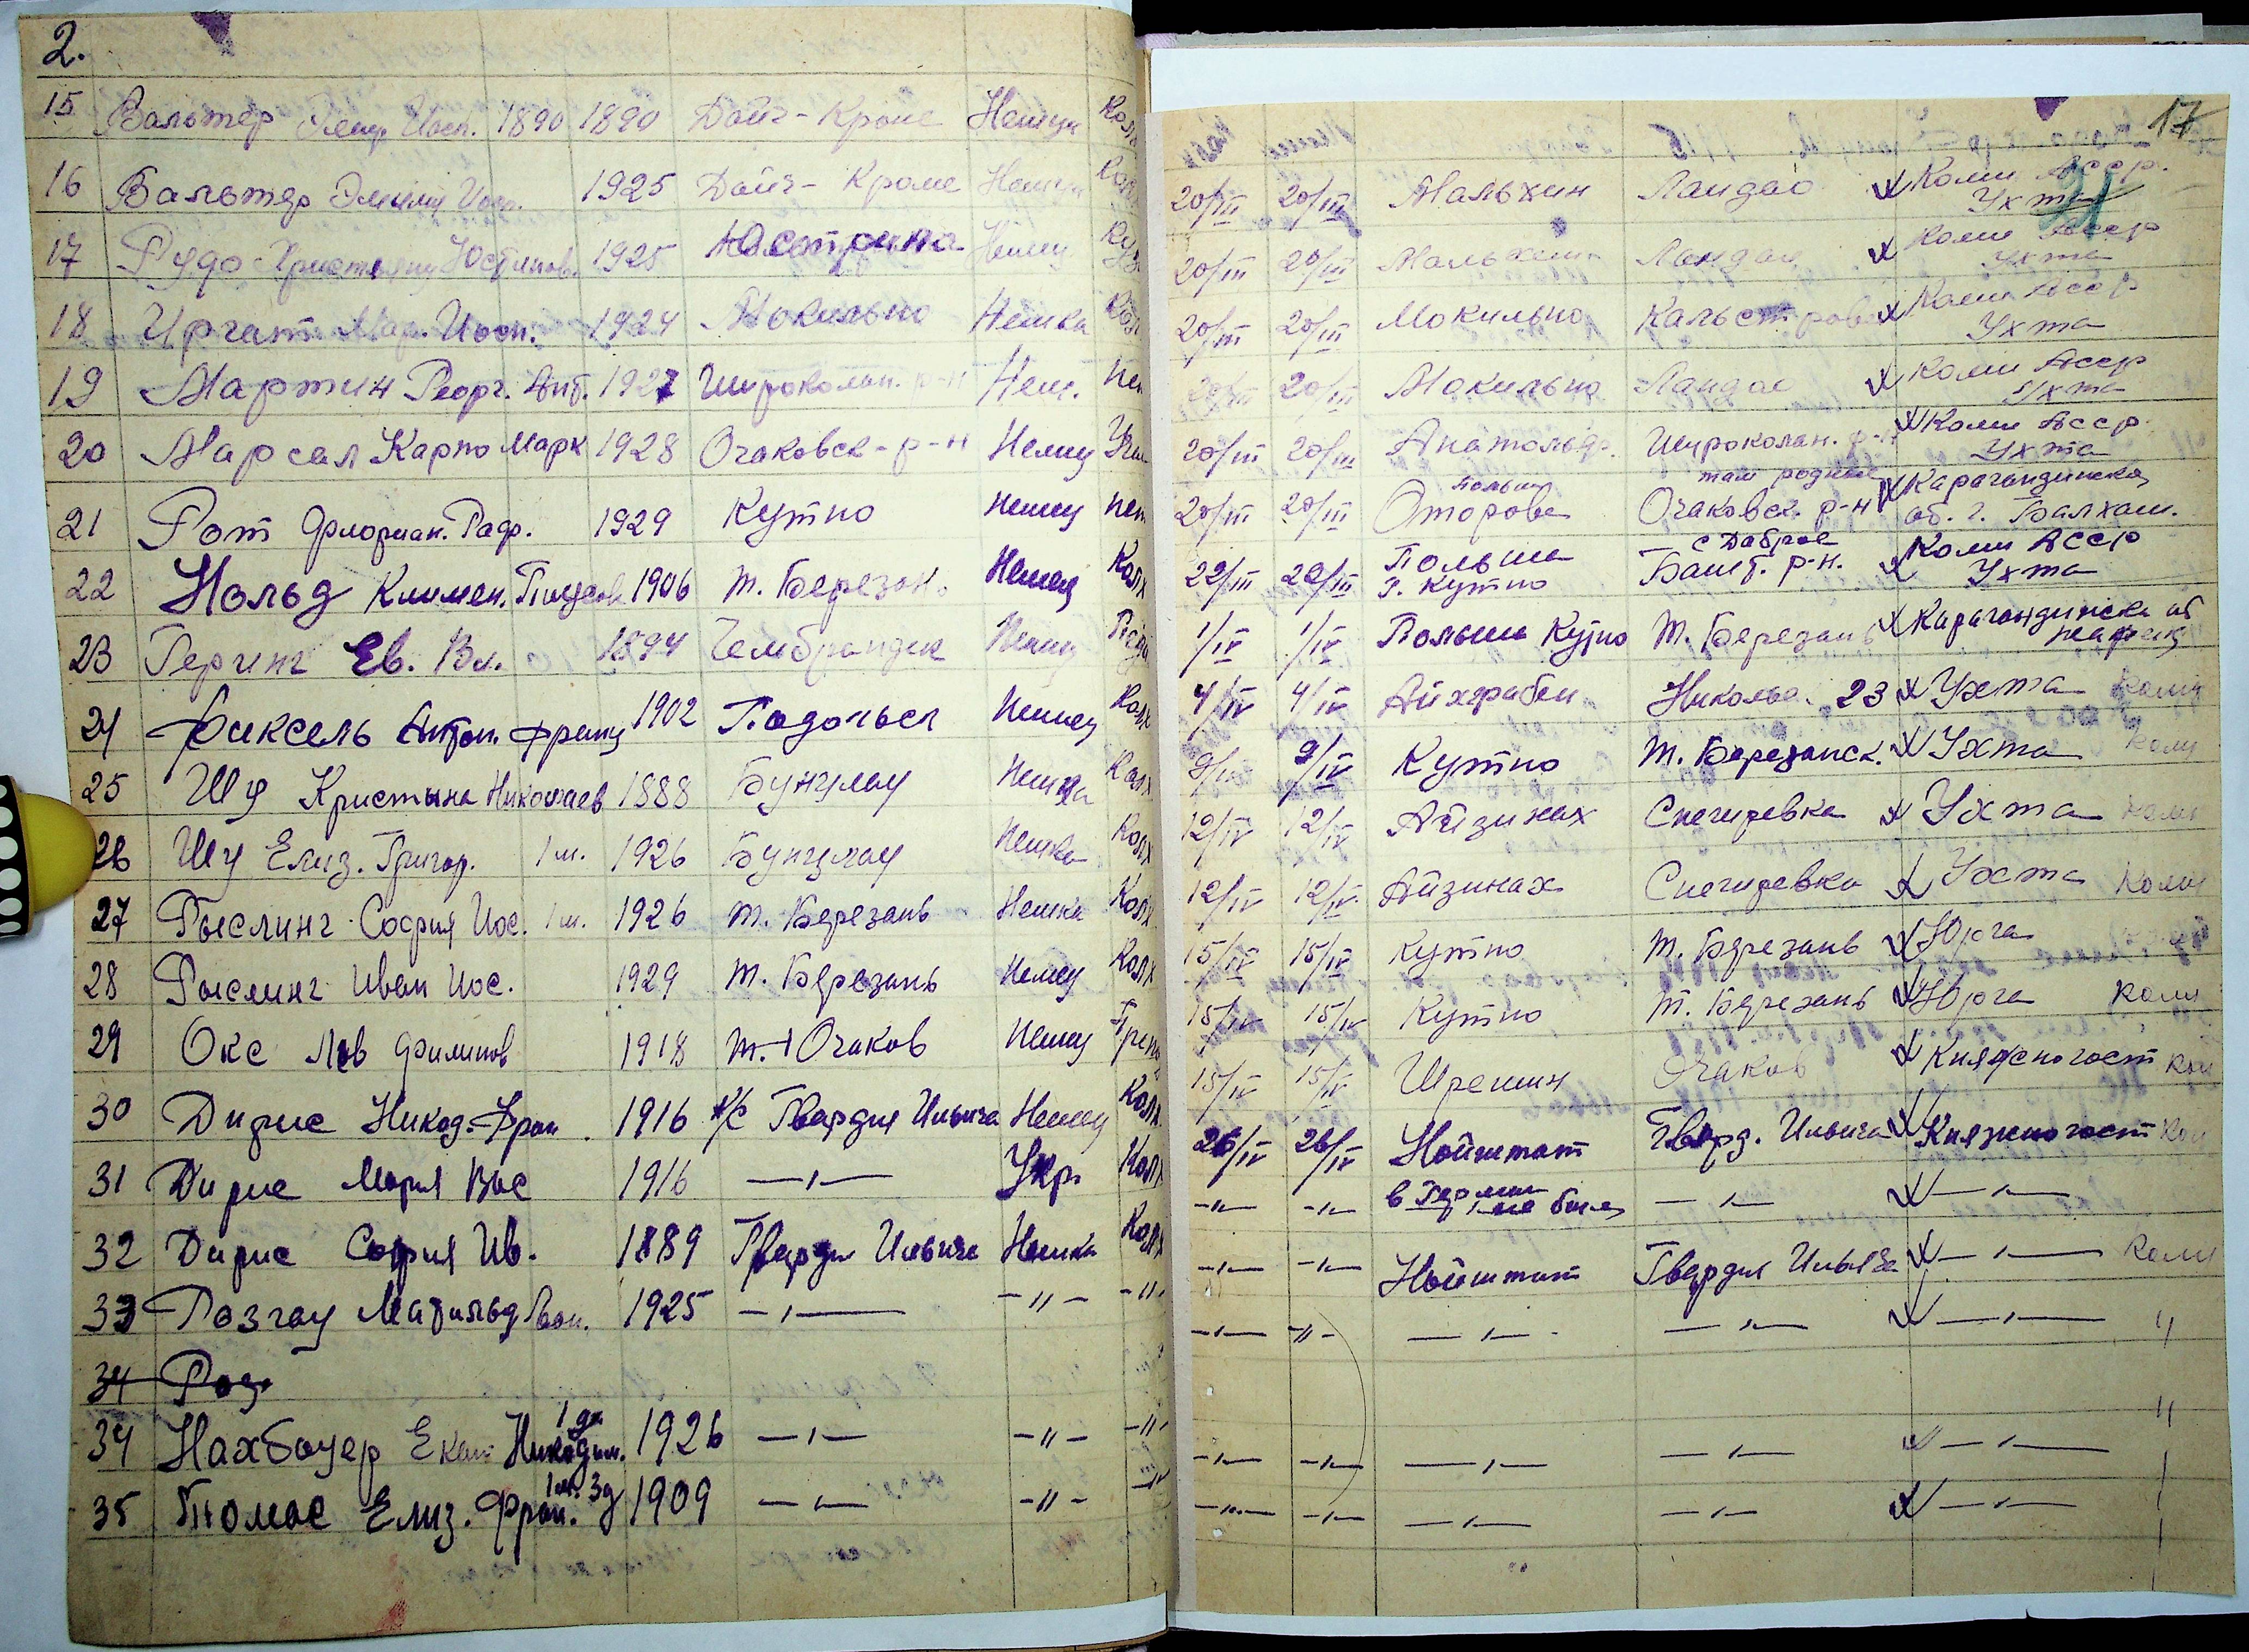 2.
15 Вальтер Иосп. 1890 1890 Дойч-Кроне Немец Кол
16 Вальтер Эмили Иосп. 1925 Дойч-Кроне Немец Кол
17 Рудо Христьян Юстинов. 1925 Юстрина Немец Куз
18 Иргат Маг. Иосп. 1924 Мокильно Немка Кол
19 Мартин Георг. Ант. 1927 Широколан. р-н Нем. нет
20 Марсал Карпо Марк 1928 Очаковск-р-н Немец Уча
21 Рот Флориан. Раф. 1929 Кутно Немец нет
22 Нольд Климен. 1906 т. Березан. Немец Колх
23 Геринг Ев. Вл. 1894 Немец
24 Фиксель Антон. Франц 1902 Подольск Немец Колх
25 Шу Кристына Николаев 1888 Бунцлау Немка Колх
26 Шу Елиз. Григор. 1 м. 1926 Бунцлау Немка Колх
27 Рыслинг София Иос. 1 м. 1926 т. Березань Немка Колх
28 Рыслинг Иван Иос. 1929 т. Березань Немец Колх
29 Окс Лев Филипов 1918 т. Очаков Немец
30 Дирис Никод. Фран. 1916 к/с Гвардия Ильича Немец Колх
31 Дирис Мария Вас 1916 —ı— Укр. Колх
32 Дирис София Ив. 1889 Гвардия Ильича Немка Колх
33 Розгоу Матильд 1925 —ı— —"— —"
34 Роз
34 Нахбоуер Екат Никодим. 1 дя 1926 —ı— —"— —"
35 Томас Елиз. Фран. 1 м. 3д 1909 —ı— —"—
17
21
20/III 20/III Мальхин Ландао Коми Асср. Ухта
20/III 20/III Мальхин Ландау Коми Асср Ухта
20/III 20/III Мокильно Кальст Коми Асср Ухта
20/III 20/III Мокильно Ландое Коми Асср Ухта
20/III 20/III Анатольд. Широколан. р-н Коми Асср. Ухта
там родные
20/III 20/III Польша Оторово Очаковск. р-н Карагандинская об. г. Балхаш.
22/III 22/III Польша г. Кутно с Даброе Башт. р-н. Коми Асср Ухта
1/IV 1/IV Польша Кутно т. Березань Карагандинска об
4/IV 4/IV Айхграбен Никольс. 23 Ухта Коми
9/IV 9/IV Кутно т. Березанск. Ухта Коми
12/IV 12/IV Айзинах Снегиревка Ухта Коми
12/IV 12/IV Айзинах Снегиревка Ухта Коми
15/IV 15/IV Кутно т. Березань Юрга
15/IV 15/IV Кутно т. Березань Юрга Коми
15/IV 15/IV Шремин Очаков Княжногост Ком
26/IV 26/IV Нойштат Гвард. Ильича Княжногост Ком
—ı— —ı— в Герман не был —ı— —ı—
—ı— —ı— Нойштат Гвардия Ильича —ı— Коми
—ı— —"— —ı— —ı— —ı— "
"
—ı— —ı— —ı— —ı— —ı—
—ı— —ı— —ı— —ı— —ı—